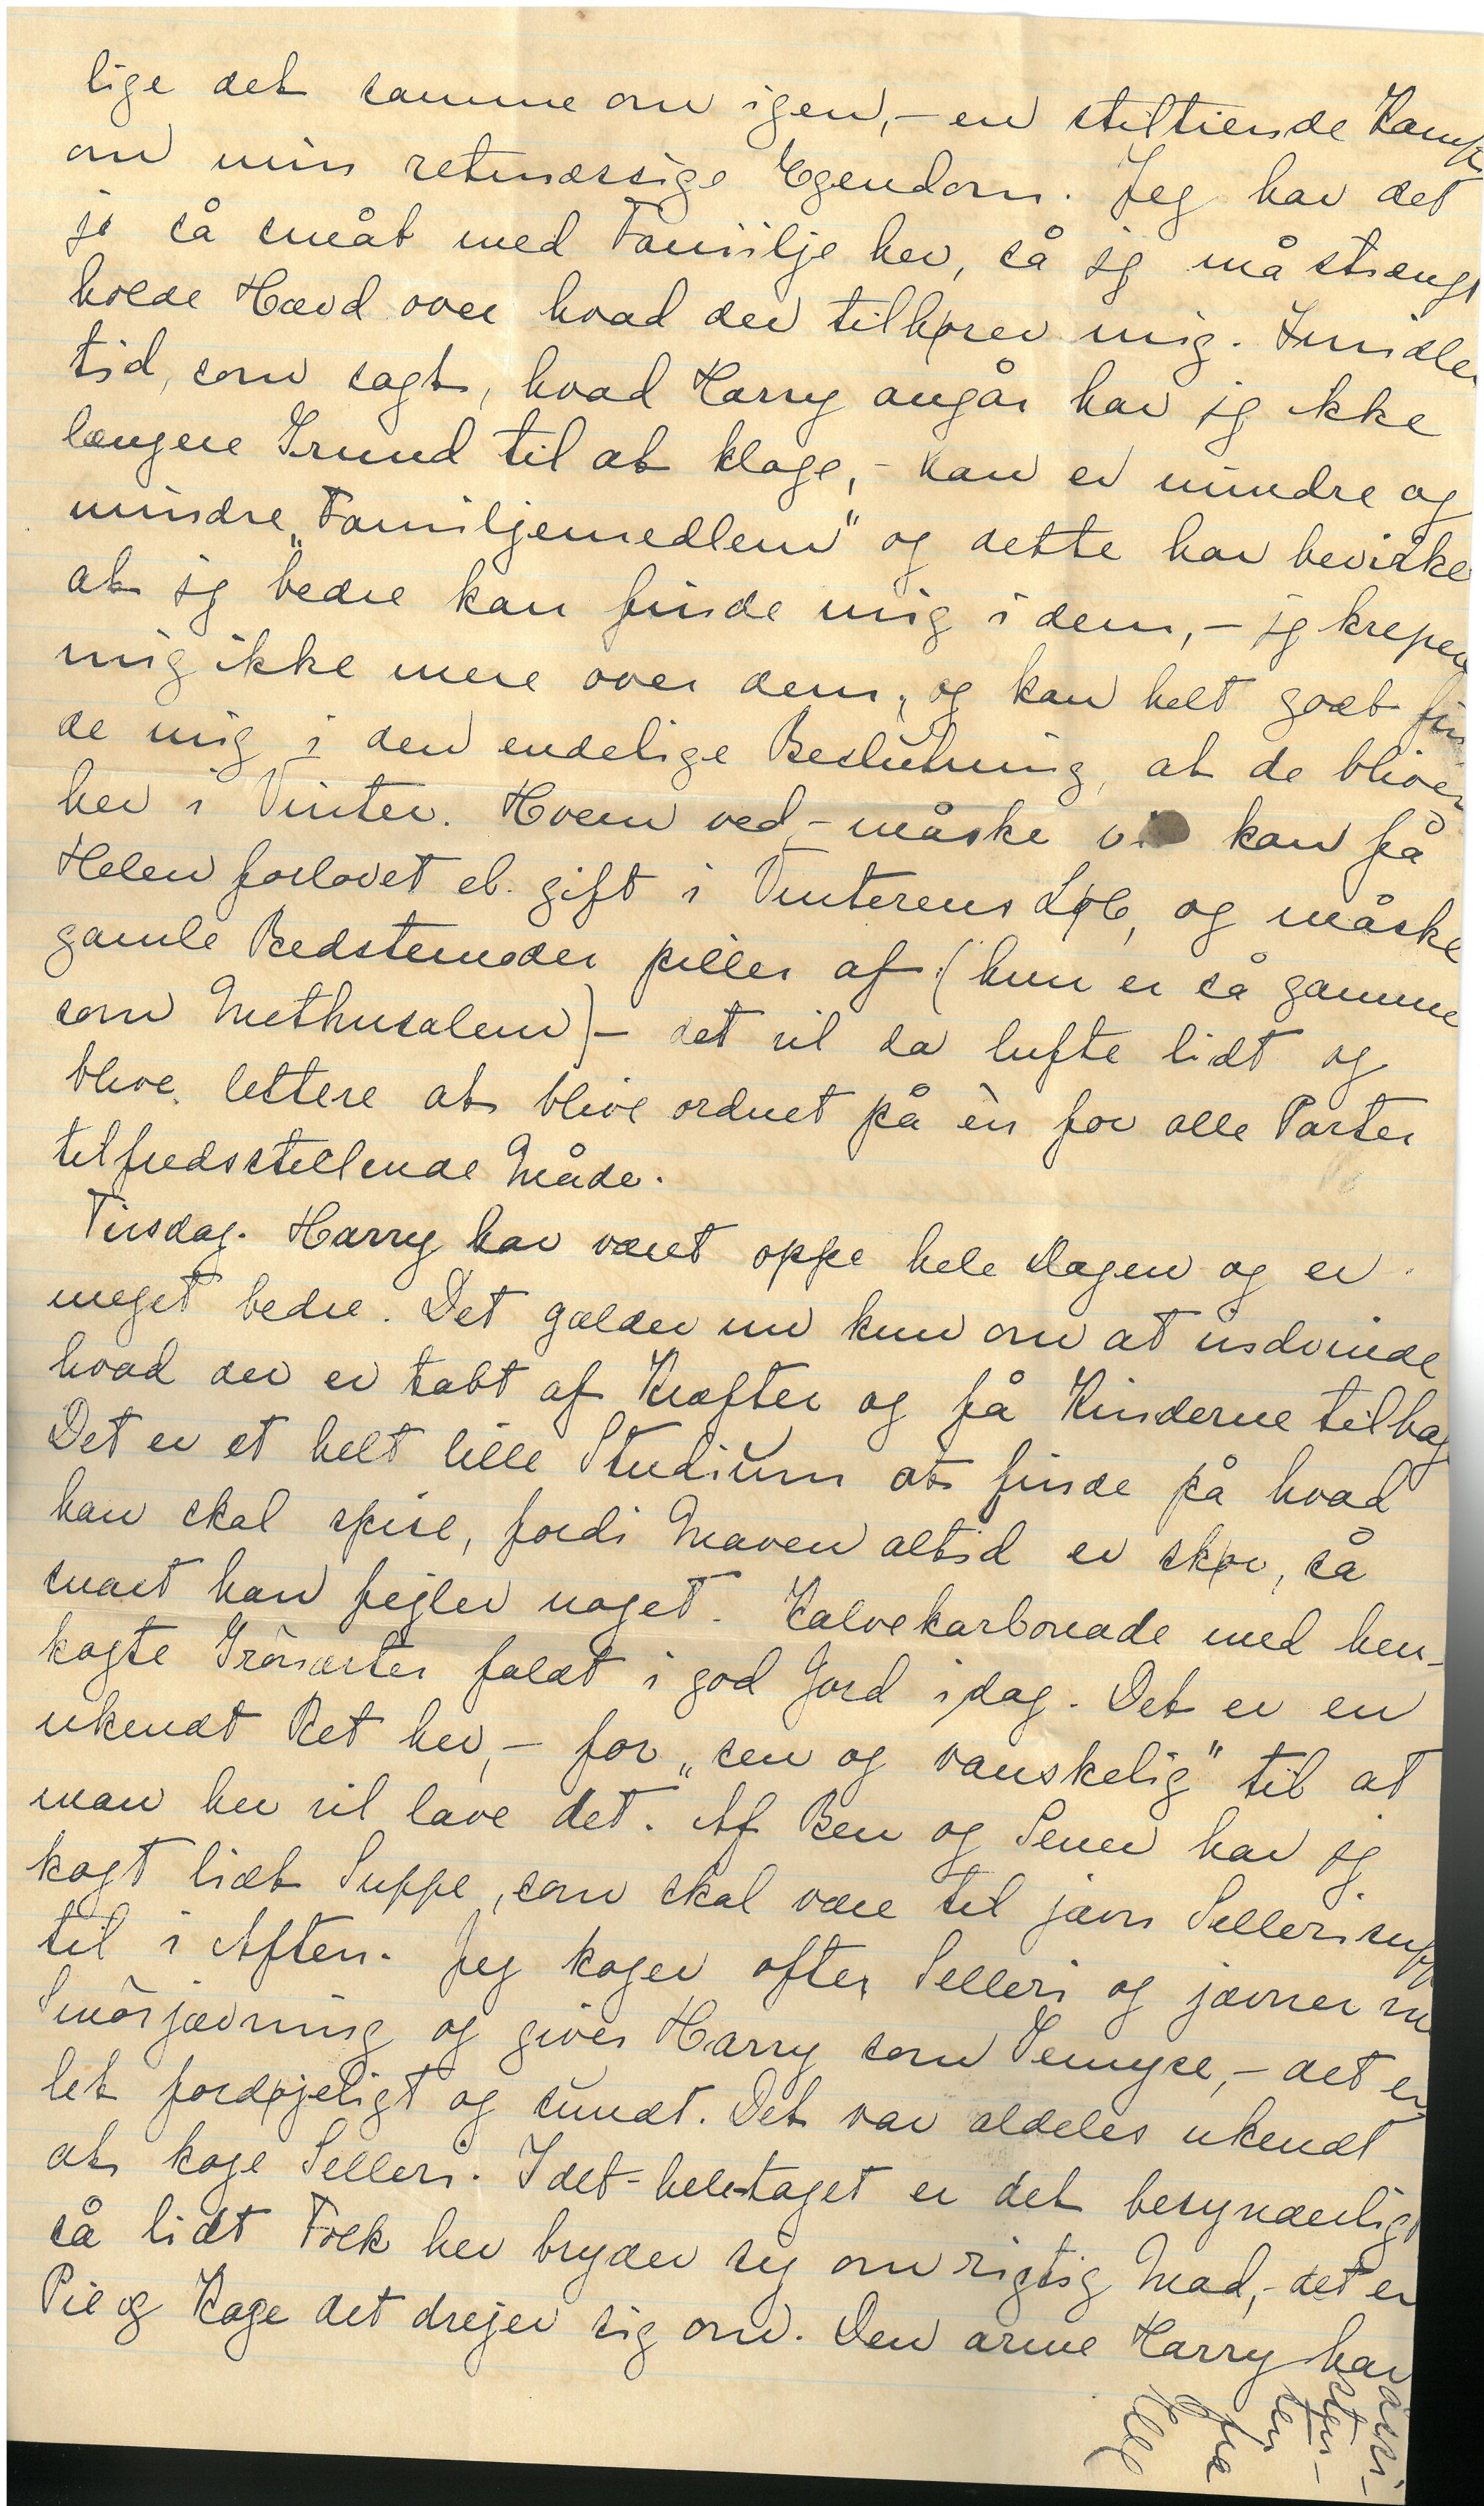 lige det samme om igen, - en stiltiende Kamp
om min retmæssige Egendom. Jeg har det
jo så småt med Familje her, så jg må strængt
holde Hævd over hvad der tilhører mig. Imidler
tid, som sagt, hvad Harry angår har jg ikke
længere Grund til at klage, - han er mindre og
mindre „Familjemedlem" og dette har bevirke
at jg bedre kan finde mig i dem, - jg kreper
mig ikke mere over dem, og kan helt godt fin
de mig i den endelige Beslutning, at de bliver
her i Vinter. Hvem ved, - måske vi kan få
Helen forlovet el. gift i Vinterens Løb, og måske
gamle Bedstemoder piller af (hun er så gamme
som Methusalem) - det vil da lufte lidt og
blive lettere at blive ordnet på èn for alle Parter
tilfredsstillende Måde.
Tirsdag. Harry har været oppe hele Dagen og er
meget bedre. Det gælder nu kun om at indvinde
hvad der er tabt af Kræfter og få Kinderne tilbag
Det er et helt lille Studium at finde på hvad
han skal spise, fordi Maven altid er skør, så
snart han fejler noget. Kalvekarbonade med hen-
kogte Grönærter faldt i god Jord idag. Det er en
ukendt Ret her, - for „sen og vanskelig" til at
man her vil lave det. Af Ben og Sener har jg
kogt lidt Suppe, som skal være til jævn Sellerisupp
til i Aften. Jeg koger ofte Selleri og jævner m
Smörjævning og giver Harry som Gemyse, - det er
let fordøjeligt og sundt. Det var aldeles ukendt
at koge Selleri. I det-hele-taget er det besynderligt
så lidt Folk her bryder sig om rigtig Mad, - det er
Pie og Kage det drejer sig om. Den arme Harry har